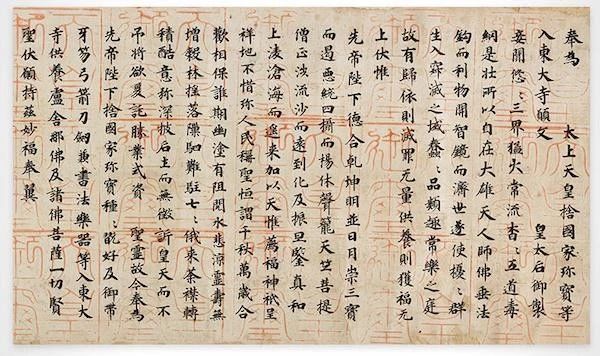 奉為 太上天皇捨國家珎寶等
入東大寺願文 皇太后御製
妾聞悠々三界猛火常流杳々五道毒
網是壯所以自在大雄天人師佛垂法
鈎而利物開智鏡而濟世遂使擾々群
生入寂滅之域蠢々品類趣常樂之庭
故有歸依則滅罪无量供養則獲福无
上伏惟
先帝陛下德合乾坤明並日月崇三寶
而遏惡統四攝而揚休聲籠天竺菩提
僧正涉流沙而遠到化及振旦鑒真和
上凌滄海而遙來加以天惟薦福神祇呈
祥地不惜珎人民稱聖恒謂千秋萬歲合
歡相保誰期幽塗有阻閱水悲涼靈壽無
增穀林搖落隙駟難駐七々俄來荼襟轉
積酷意弥深披后土而無徵訴皇天而不
弔將欲爰託勝業式資 聖靈故今奉為
先帝陛下捨國家珎寶種々翫好及御帶
牙笏弓箭刀劒兼書法樂器等入東大
寺供養盧舍那佛及諸佛菩薩一切賢
聖伏願持茲妙福奉翼